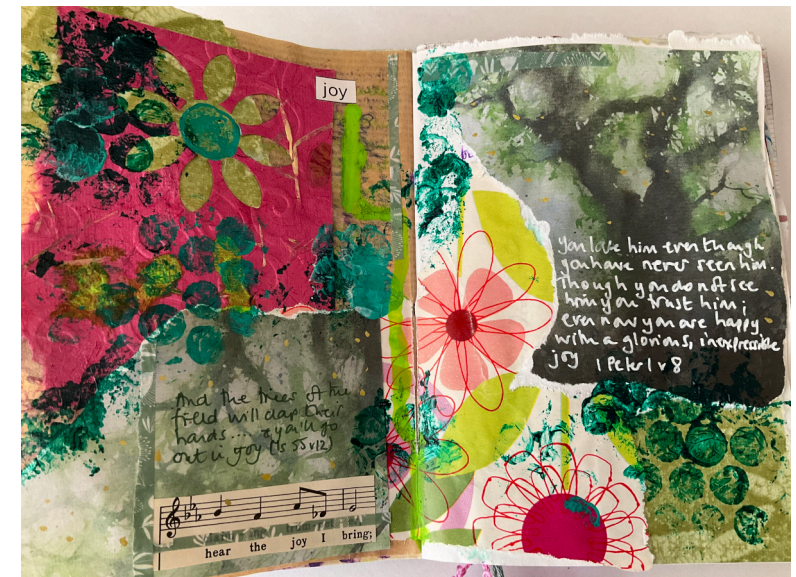 joy
And the trees of the
field will clap their
hands.... & you'll go
out in joy (Is 55 v12)
hear the joy I bring;
you love him even though
you have never seen him.
Though you do not see
him you trust him;
even now you are happy
with a glorious, inexpressible
joy 1 Peter 1 v 8